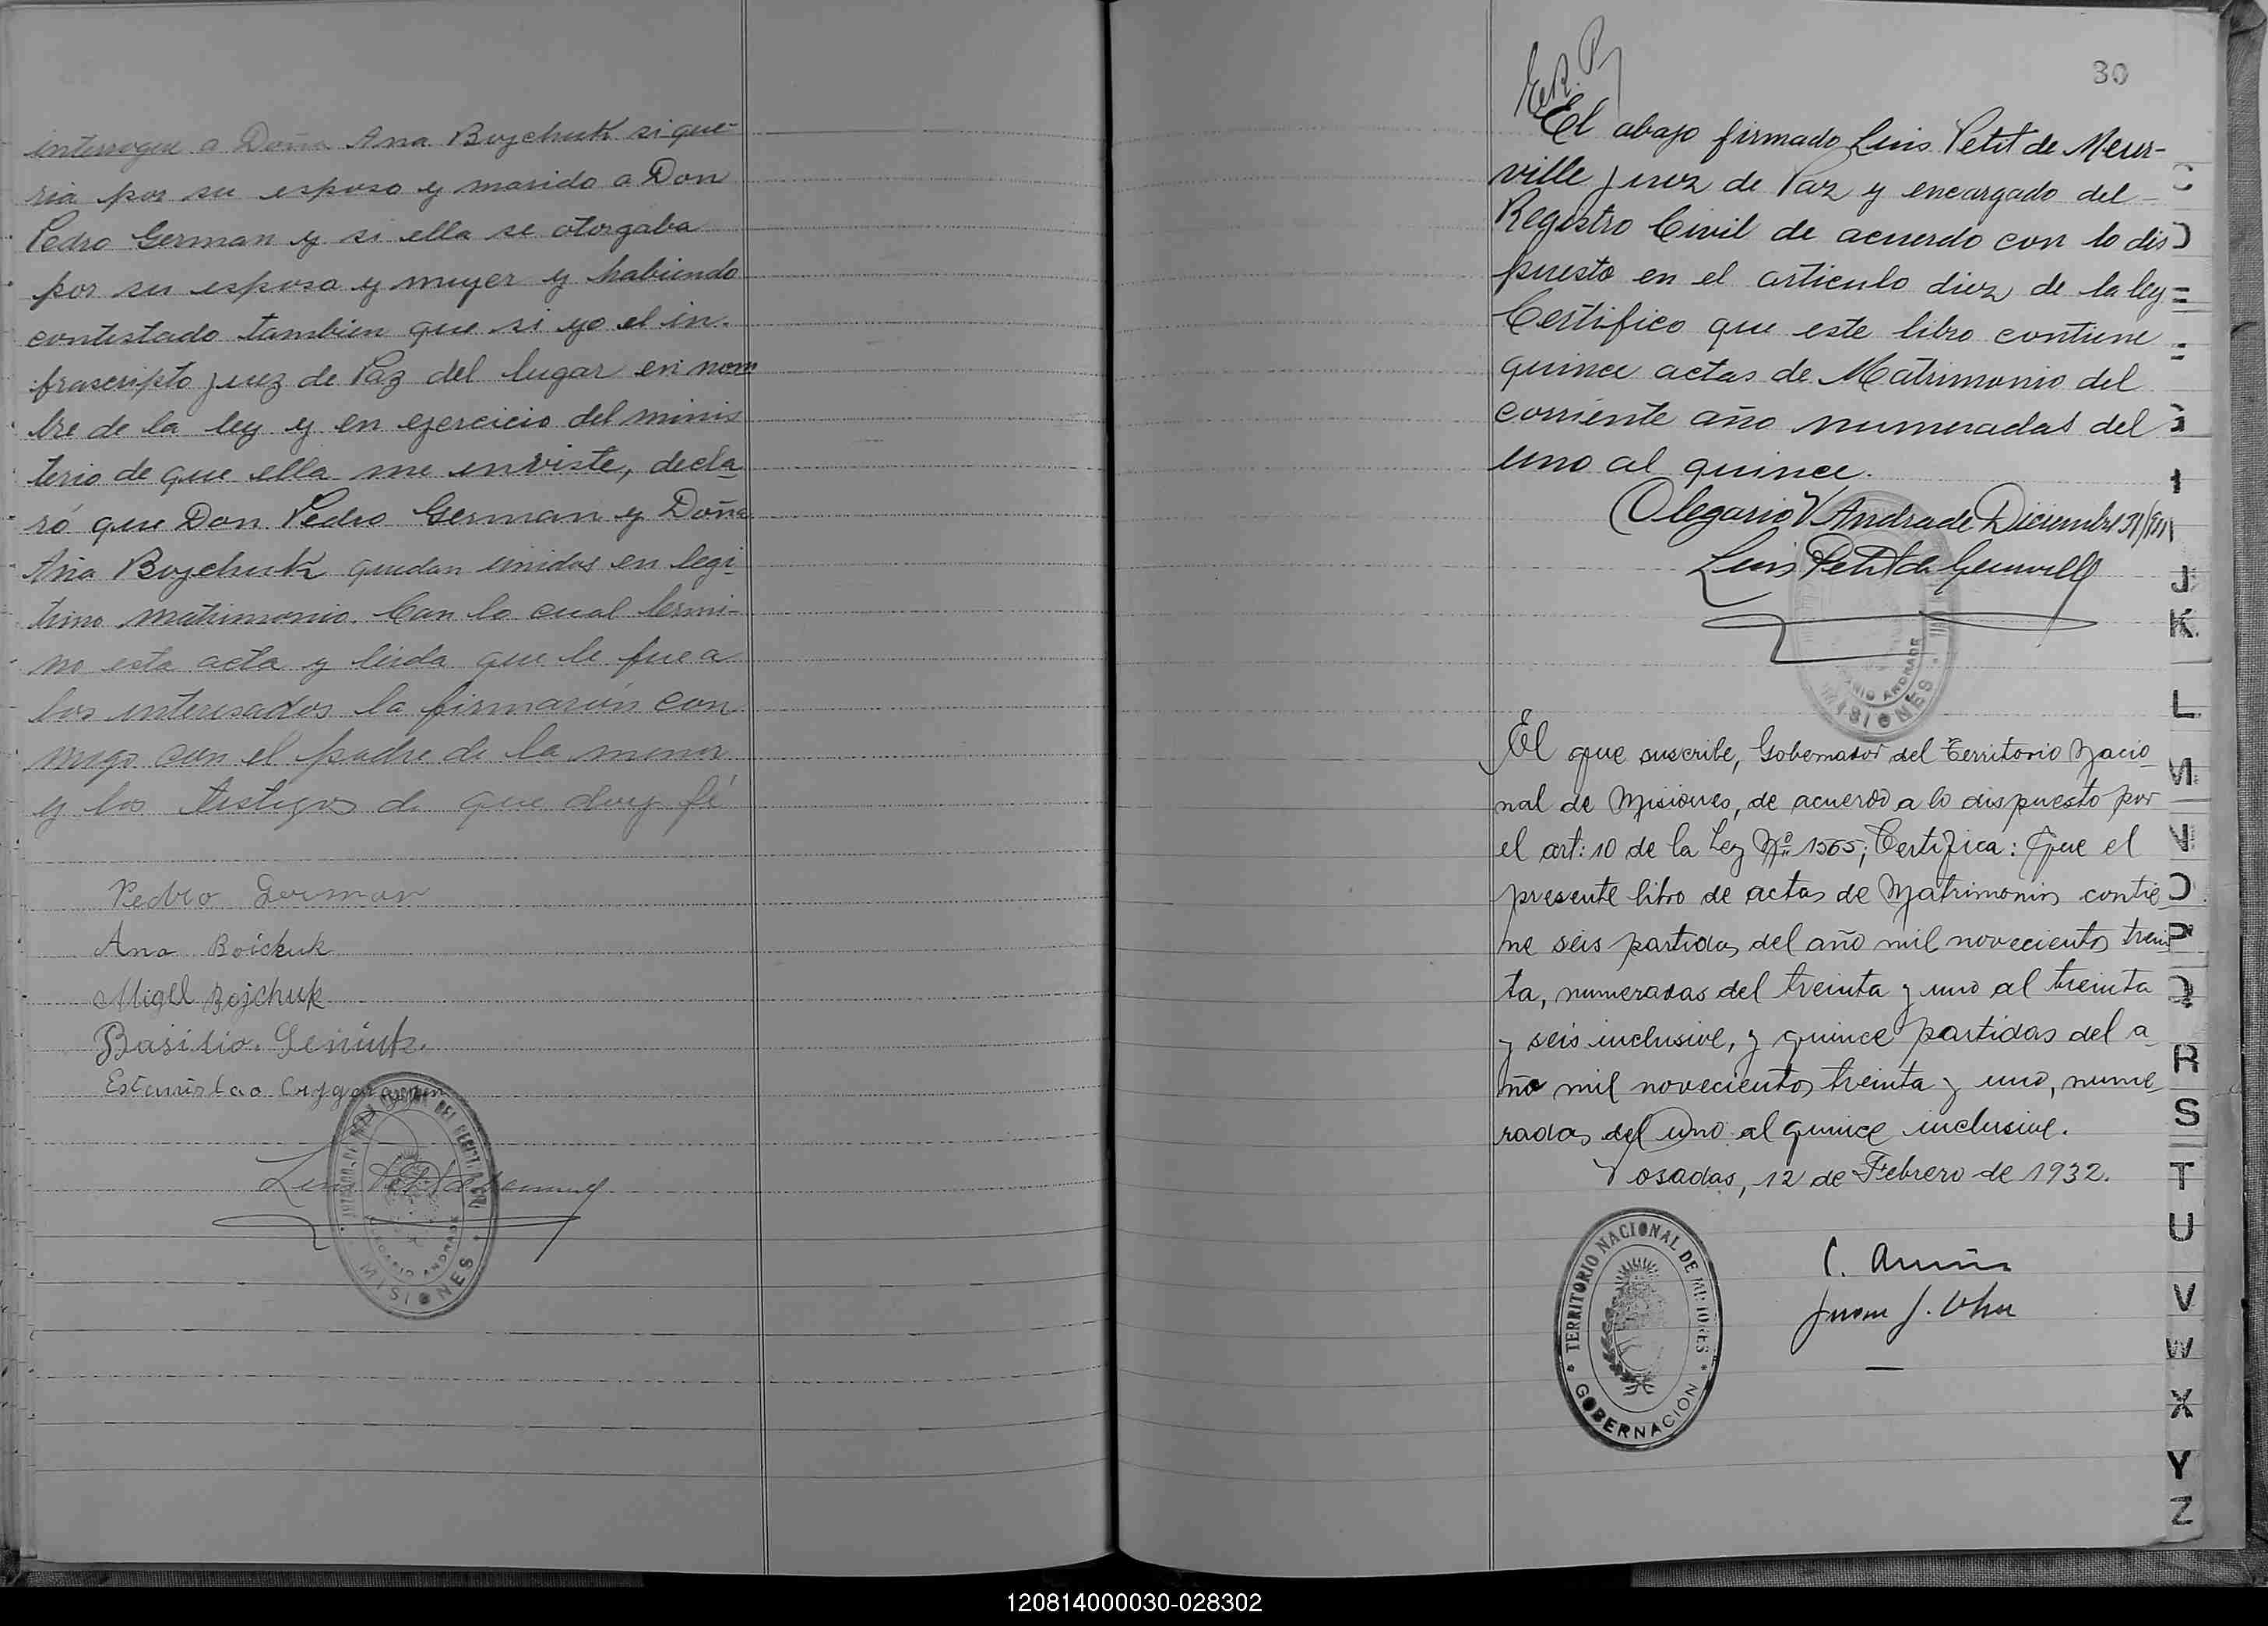 interrogue a Doña Ana Bojchuk si que-
ria por su esposo y marido a Don
Pedro German y si ella se otorgaba
por su esposa y muyer y habiendo
contestado tambien que si yo el in-
frascripto juez de Paz del lugar en nom
bre de la ley y en ejercicio del minis
terio de que ella me enviste, decla
ró que Don Pedro German y Doña
Ana Bojchuk quedan unidos en legi-
timo matrimonio. Con lo cual termi-
no esta acta y leida que le fue a
los interesados la firmaron con
migo con el padre de la menor
y los testigos de que doy fé
Pedro German
Ana Boichuk
Migel Bojchuk
Basilio
Estanislao
MISIONES
30
El abajo firmado Luis Petit de Meur-
ville juez de Paz y encargado del
Registro Civil de acuerdo con lo dis
puesto en el articulo diez de la ley
Certifico que este libro contiene
quince actas de Matrimonio del
corriente año numeradas del
uno al quince.
Olegario V Andrade Diciembre 31/931
Luis Petit de Meurville
MISIONES
El que suscribe, Gobernador del Territorio Nacio
nal de Misiones, de acuerdo a lo dispuesto por
el art: 10 de la Ley Nº 1565; Certifica: Que el
presente libro de actas de Matrimonios contie
ne seis partidas del año mil novecientos trein
ta, numeradas del treinta y uno al treinta
y seis inclusive, y quince partidas del a
ño mil novecientos treinta y uno, nume
radas del uno al quince inclusive.
Posadas, 12 de Febrero de 1932.
TERRITORIO NACIONAL DE MISIONES
GOBERNACIÓN
I
J
K
L
M
N
O
P
Q
R
S
T
U
V
W
X
Y
Z
120814000030-028302